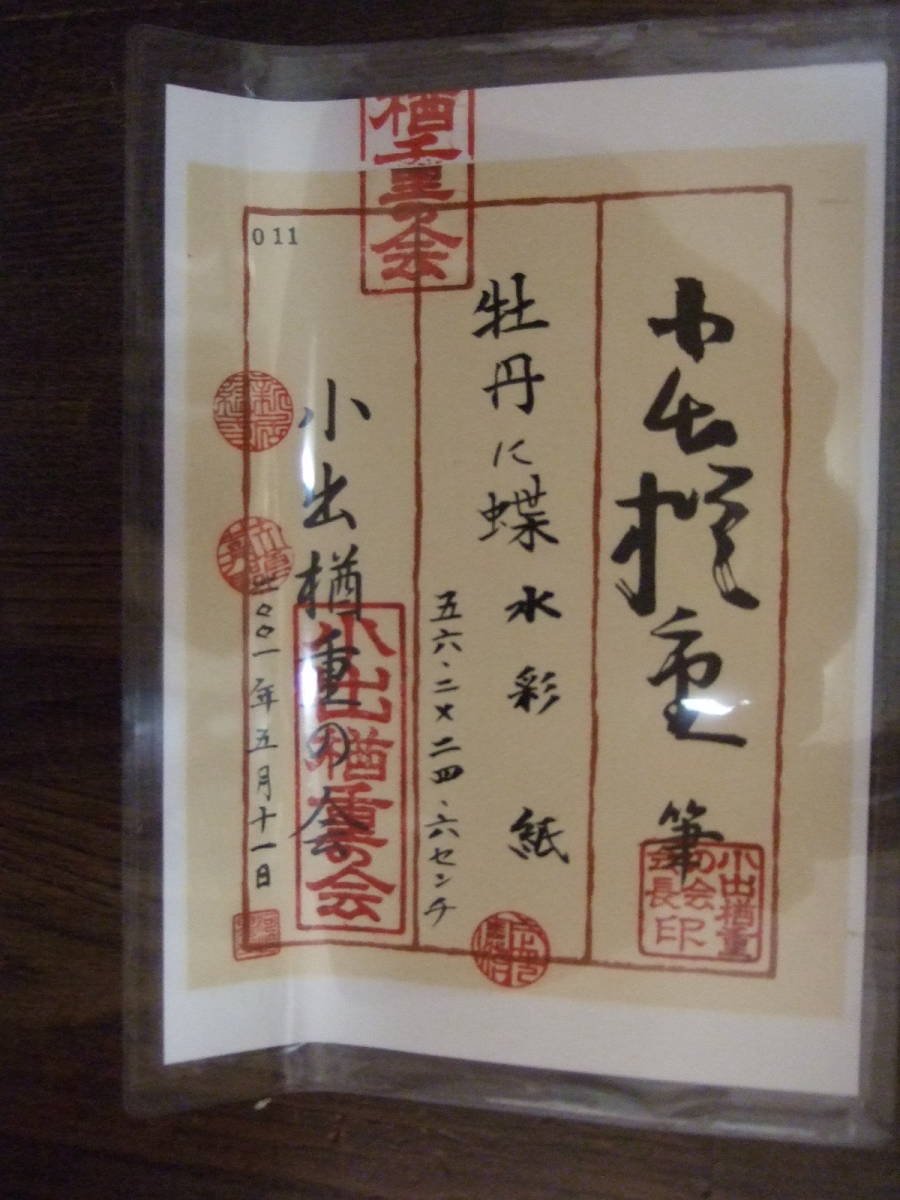 小出楢重 筆
小出楢重の会会長印
牡丹に蝶 水彩 紙
五六.二×二四.六センチ
小出楢重の会
小出楢重の会
楢重の会
二〇〇一年五月十一日
011